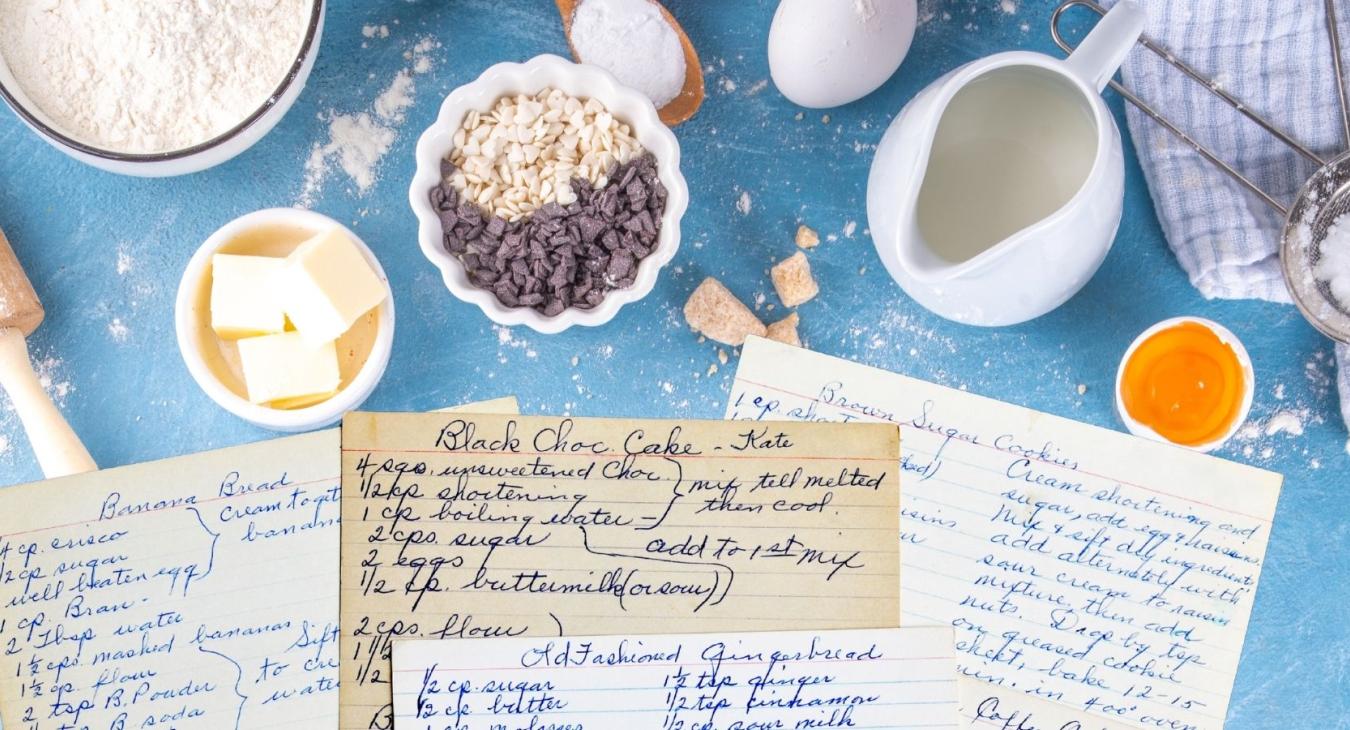 Banana Bread
cp. crisco
cream toget
1/2 cp sugar
banana
well beaten egg
1 cp. Bran -
2 Tbsp water
1½ cps. mashed bananas
Sift
1½ cp. flour
to cre
2 tsp B. Powder
water
tsp B. soda
Black Choc. Cake - Kate
4 sqs. unsweetened Choc.
mix tell melted
1/2 cp shortening
then cool.
1 cp boiling water -
2 cps. sugar
add to 1st mix
2 eggs
1/2 cp. buttermilk (or sour)
2 cps. flour
1 1/2
1/2
B
Old Fashioned Gingerbread
1/2 cp. sugar
1½ tsp ginger
1/2 cp butter
1/2 tsp cinnamon
cp molasses
1/2 cp sour milk
Brown Sugar Cookies
1 cp. short
Cream shortening and
sugar, add egg & raisins.
Mix & sift dry ingredients
add alternately with
sour cream to raisin
mixture, then add
nuts. Drop by tsp
on greased cookie
sheet, bake 12-15
min. in 400° oven